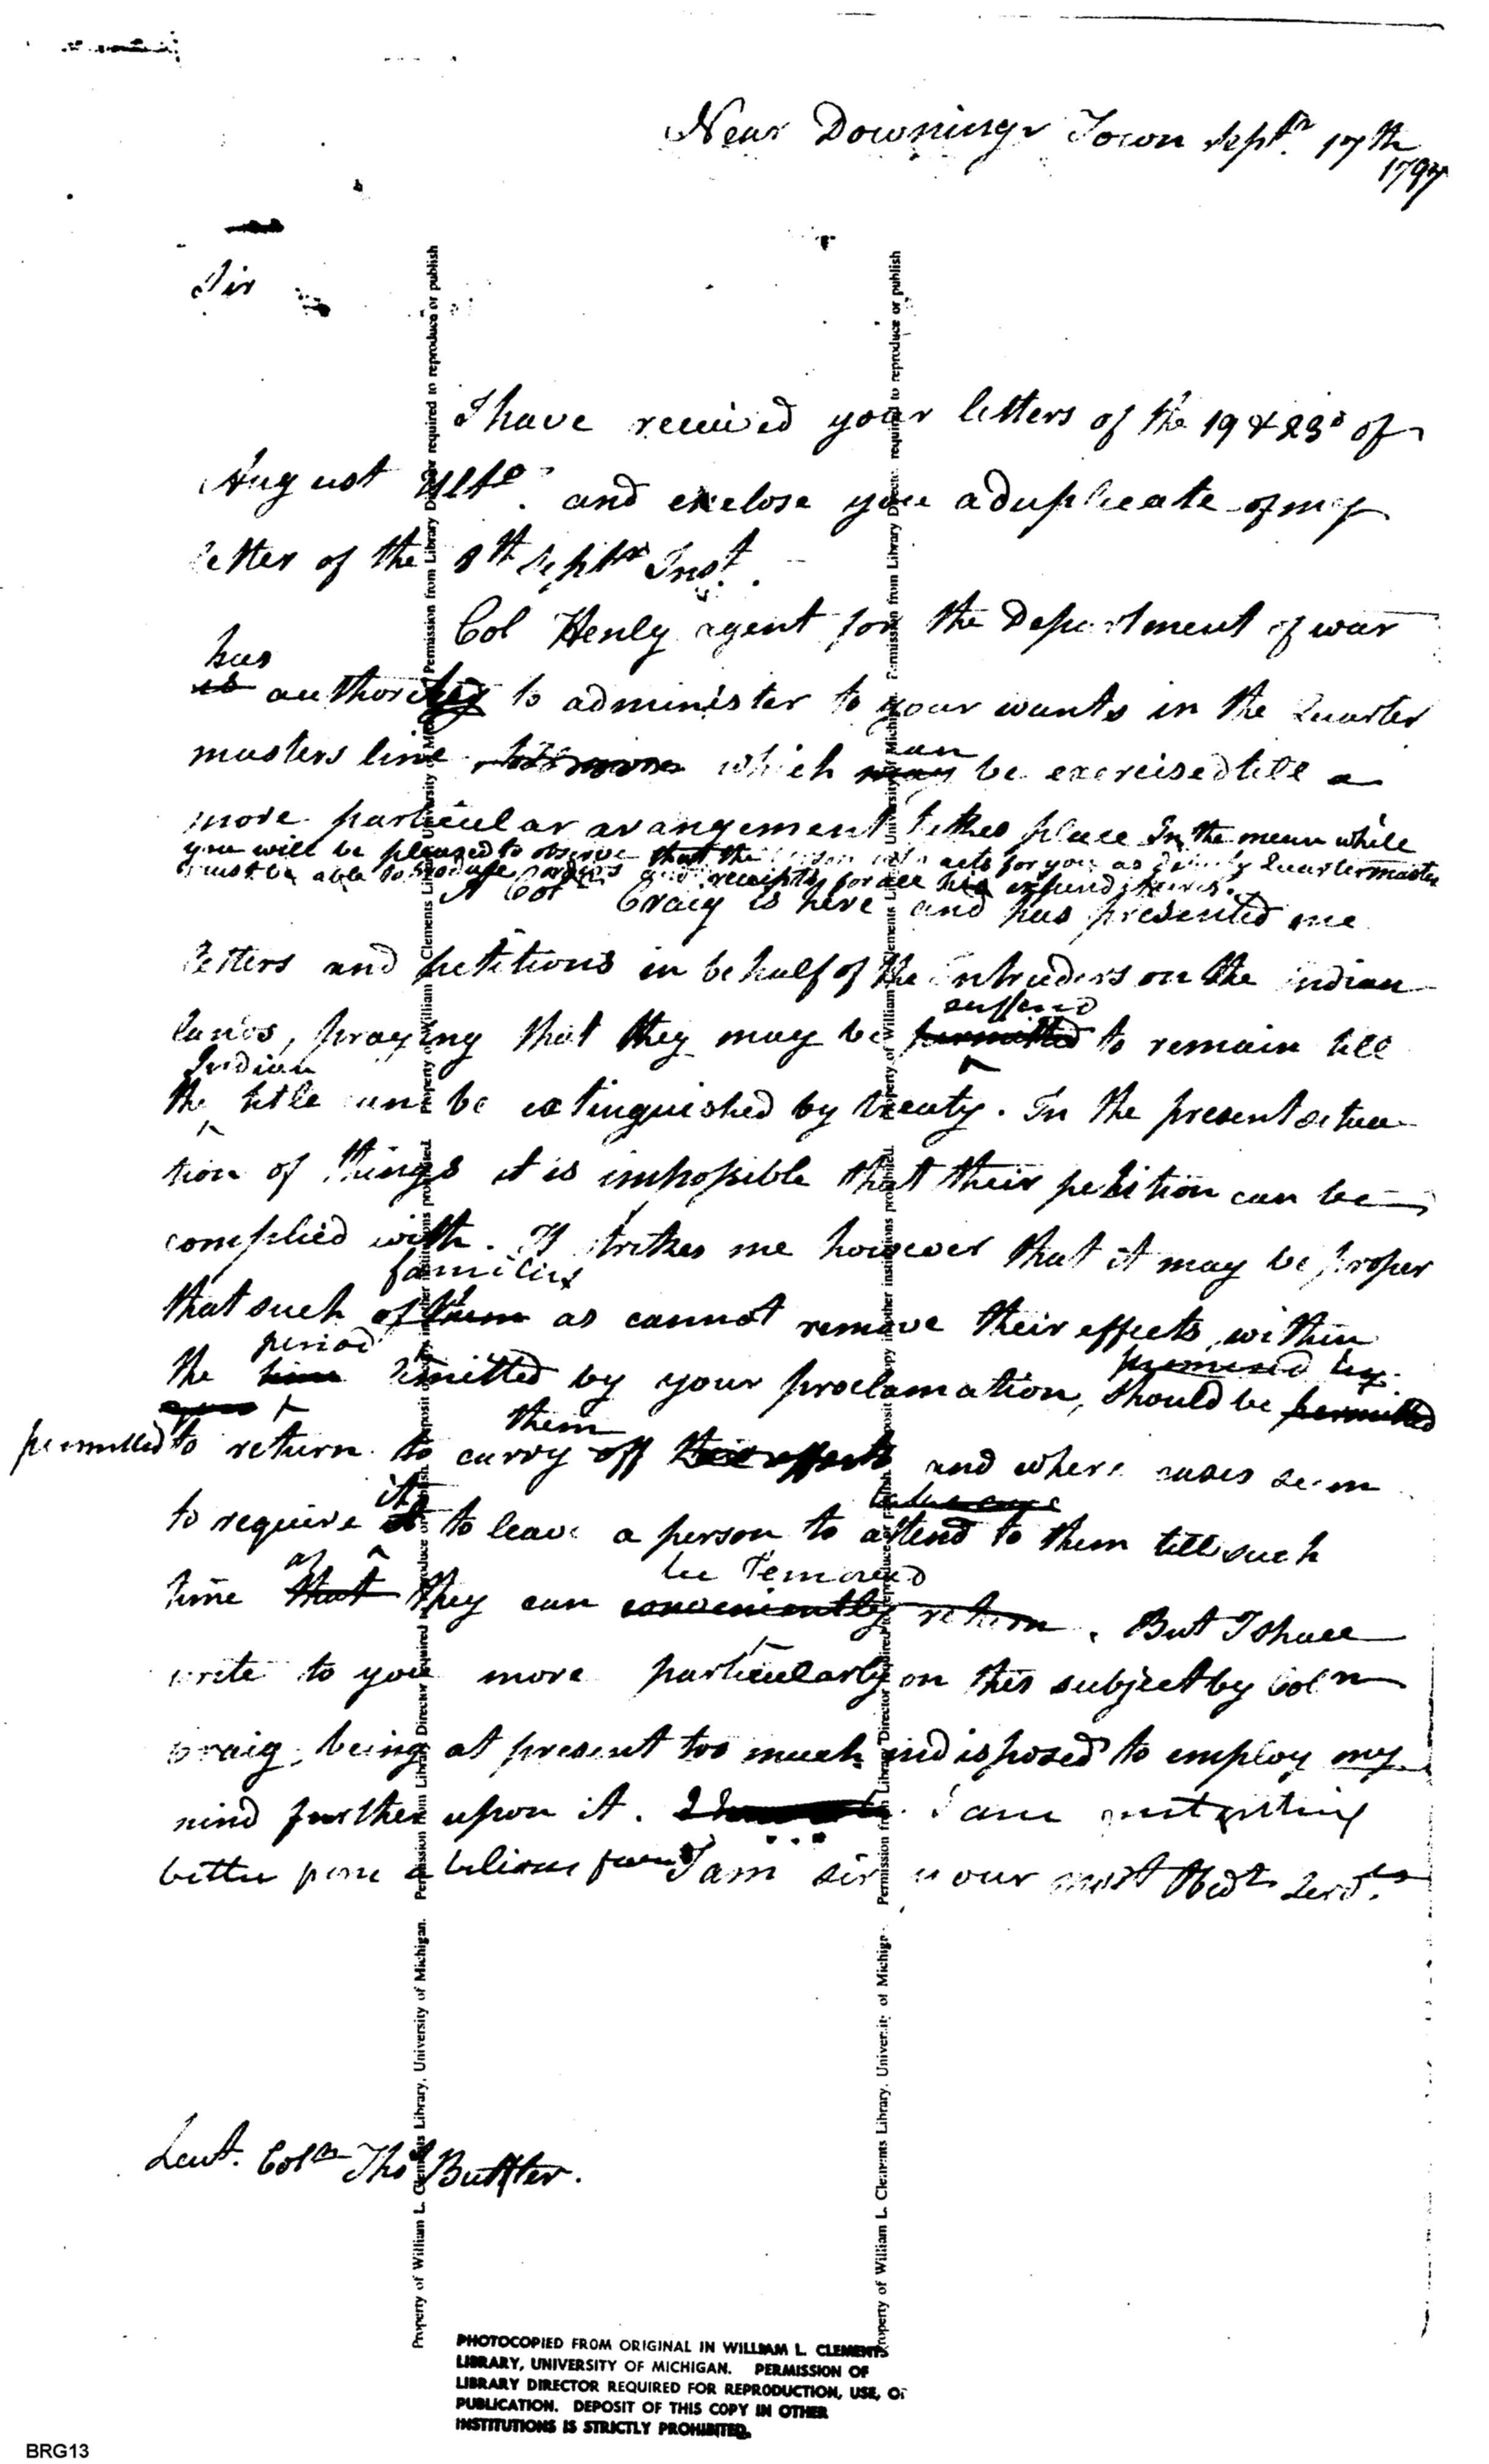 Near Downings Town Septr. 17th
1797
Sir
I have received your letters of the 19 & 23d of
August Ulto. and enclose you a duplicate of my
letter of the 8th Septbr Inst.
Col Henly agent for the Department of war
has
is authority to administer to your wants in the Quarter
masters line which may be exercised till a
can
more particular arangement takes place In the mean while
you will be pleased to observe that the person who acts for you as deputy Quartermaster
must be able to produse orders and receipts for all his expenditures.
A Col Craig is here and has presented me
letters and petitions in behalf of the Intruders on the indian
suffered
lands, praying that they may be permitted to remain till
Indian
the title can be extinguished by treaty. In the present situa
tion of things it is impossible that their petition can be
complied with. It strikes me however that it may be proper
families
that such of them as cannot remove their effects within
period
the time limitted by your proclamation, should be permitted
permitted to return to carry off their effects and where cases seem
them
it
to require it to leave a person to attend to them till such
take care
as be removed
time that they can conveniently return. But I shall
write to you more particularly on this subject by Coln
Craig, being at present too much indisposed to employ my
mind further upon it. I am getting
better a bilious I am sir your most Obedt Servt.
Leut. Coln Thos Buttler.
Property of William L. Clements Library, University of Michigan. Permission from Library Director required to reproduce or publish
Property of William L. Clements Library, University of Michigan. Permission from Library Director required to reproduce or publish
PHOTOCOPIED FROM ORIGINAL IN WILLIAM L. CLEMENTS
LIBRARY, UNIVERSITY OF MICHIGAN. PERMISSION OF
LIBRARY DIRECTOR REQUIRED FOR REPRODUCTION, USE, OR
PUBLICATION. DEPOSIT OF THIS COPY IN OTHER
INSTITUTIONS IS STRICTLY PROHIBITED.
BRG13